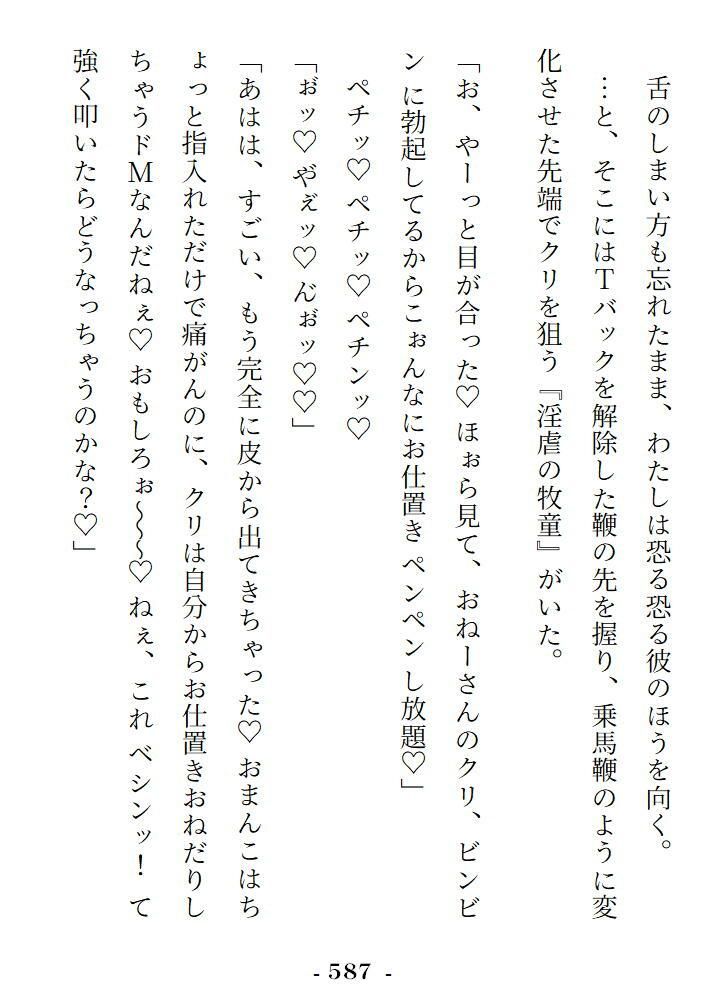 舌のしまい方も忘れたまま、わたしは恐る恐る彼のほうを向く。
…と、そこにはTバックを解除した鞭の先を握り、乗馬鞭のように変
化させた先端でクリを狙う『淫虐の牧童』がいた。
「お、やーっと目が合った♡ ほぉら見て、おねーさんのクリ、ビンビ
ン に勃起してるからこぉんなにお仕置き ペンペン し放題♡」
ペチッ♡ ペチッ♡ ペチンッ♡
「ぉ゙ッ♡ や゙ぇ゙ッ♡ ん゙ぉ゙ッ♡♡」
「あはは、すごい、もう完全に皮から出てきちゃった♡ おまんこはち
ょっと指入れただけで痛がんのに、クリは自分からお仕置きおねだりし
ちゃうドMなんだねぇ♡ おもしろぉ〜〜〜♡ ねぇ、これ ベシンッ！ て
強く叩いたらどうなっちゃうのかな？♡」
- 587 -